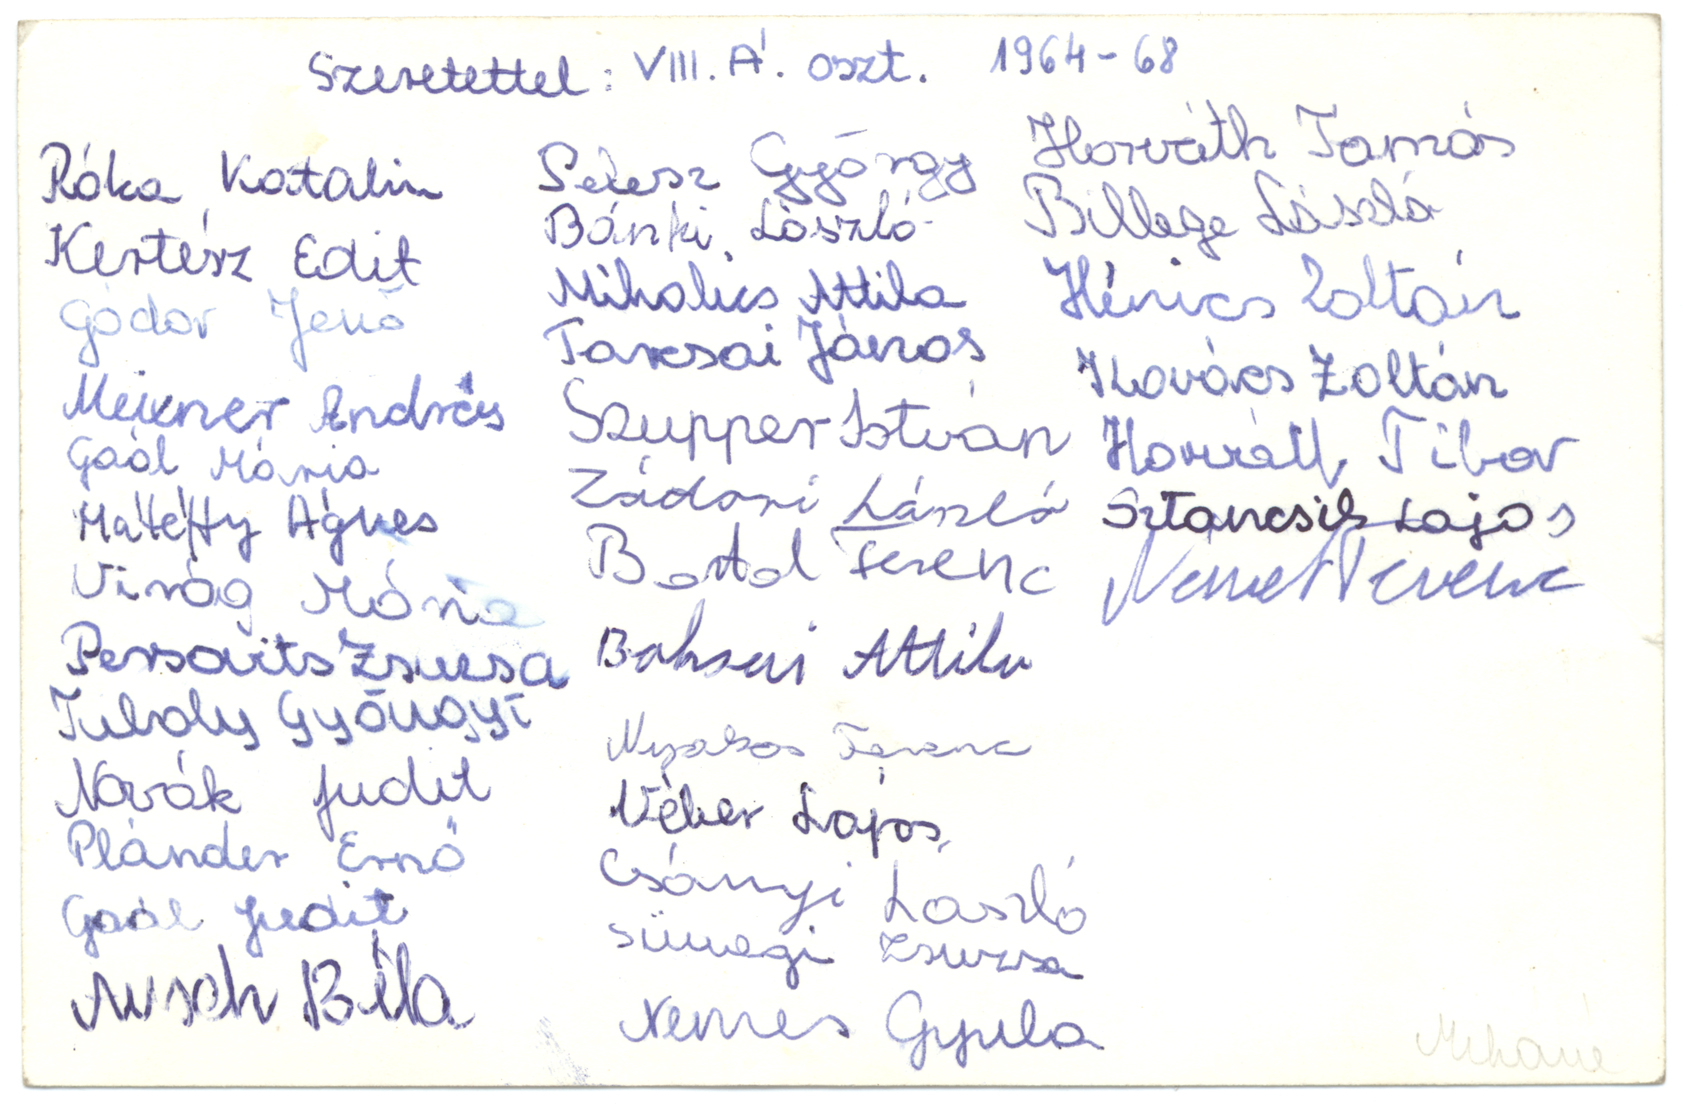 Szeretettel: VIII. A'. oszt. 1964-68
Róka Katalin
Kertész Edit
Gódor Jenő
Meixner András
Gaál Mária
Matéffy Ágnes
Virág Mária
Persaits Zsuzsa
Tuboly Gyöngyi
Novák Judit
Plánder Ernő
Gaál Judit
Béla
György
Bánki László
Mihalics Attila
Tarcsai János
Szupper István
Zádori László
Ferenc
Attila
Nyakos Ferenc
Véber Lajos
Csányi László
Sümegi Zsuzsa
Nemes Gyula
Horváth Tamás
Billege László
Hénics Zoltán
Kovács Zoltán
Horváth Tibor
Sztancsik Lajos
Nemet Ferenc